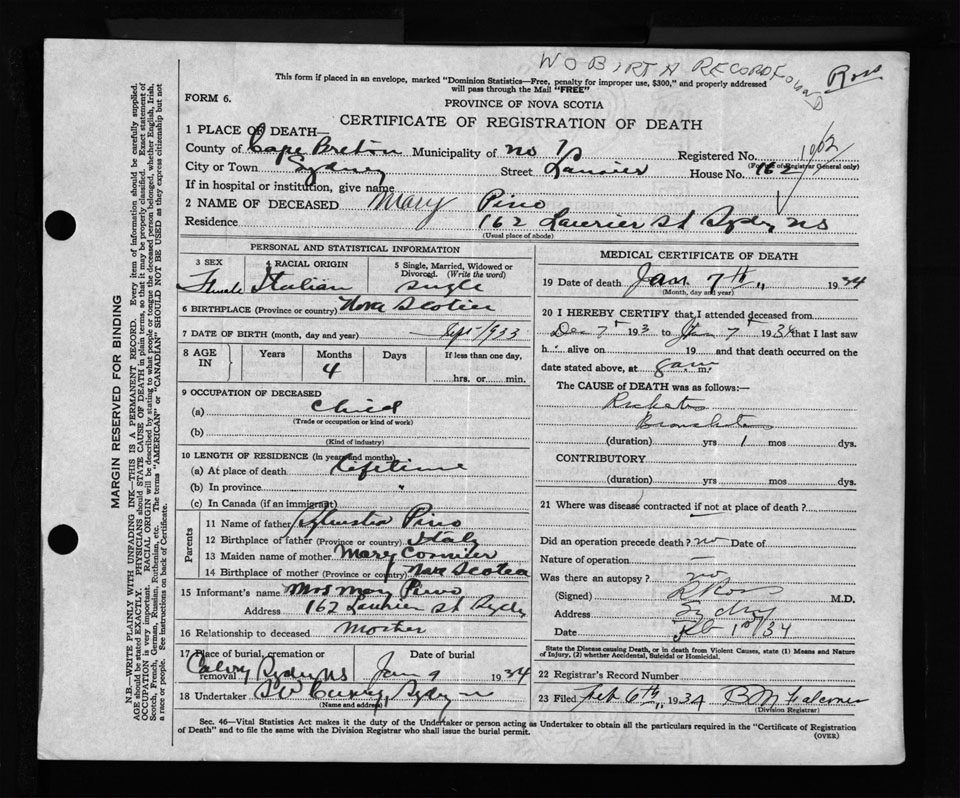 NO BIRTH RECORD FOUND Ross
This form if placed in an envelope, marked "Dominion Statistics—Free, penalty for improper use, $300," and properly addressed
will pass through the Mail "FREE"
FORM 6.
PROVINCE OF NOVA SCOTIA
CERTIFICATE OF REGISTRATION OF DEATH
1 PLACE OF DEATH—
County of Cape Breton Municipality of no Registered No. 162
(For use of Registrar General only)
City or Town Sydney Street Laurier House No. 162
If in hospital or institution, give name
2 NAME OF DECEASED Mary Pino
Residence 162 Laurier St Sydney NS
(Usual place of abode)
PERSONAL AND STATISTICAL INFORMATION
3 SEX 4 RACIAL ORIGIN 5 Single, Married, Widowed or
Divorced. (Write the word)
Female Italian single
6 BIRTHPLACE (Province or country) Nova Scotia
7 DATE OF BIRTH (month, day and year) Sept 1933
8 AGE IN Years Months Days If less than one day,
4 hrs. or min.
9 OCCUPATION OF DECEASED
(a) Child
(Trade or occupation or kind of work)
(b)
(Kind of industry)
10 LENGTH OF RESIDENCE (In years and months)
(a) At place of death Lifetime
(b) In province "
(c) In Canada (if an immigrant)
Parents
11 Name of father Pino
12 Birthplace of father (Province or country) Italy
13 Maiden name of mother Mary Cormier
14 Birthplace of mother (Province or country) Nova Scotia
15 Informant's name Mrs Mary Pino
Address 162 Laurier St Sydney
16 Relationship to deceased Mother
17 Place of burial, cremation or removal Date of burial
Calvary Sydney NS Jan 9 1934
18 Undertaker Sydney
(Name and address)
MEDICAL CERTIFICATE OF DEATH
19 Date of death Jan 7th " 1934
(Month, day and year)
20 I HEREBY CERTIFY that I attended deceased from
Dec 7th 193 to Jan 7th 1934 that I last saw
h alive on 19 and that death occurred on
date stated above, at 8 am m.
The CAUSE OF DEATH was as follows:—
Rickets
Bronchitis
(duration) yrs 1 mos dys.
CONTRIBUTORY
(duration) yrs. mos. dys.
21 Where was disease contracted if not at place of death?
Did an operation precede death? no Date of
Nature of operation —
Was there an autopsy? no
(Signed) Ross M.D.
Address Sydney
Date Feb 1st 34
State the Disease causing Death, or in death from Violent Causes, state (1) Means and Nature
of Injury, (2) whether Accidental, Suicidal or Homicidal.
22 Registrar's Record Number
23 Filed Feb 6th, 1934
(Division Registrar)
Sec. 46—Vital Statistics Act makes it the duty of the Undertaker or person acting as Undertaker to obtain all the particulars required in the "Certificate of Registration
of Death" and to file the same with the Division Registrar who shall issue the burial permit.
(OVER)
MARGIN RESERVED FOR BINDING
N.B.—WRITE PLAINLY WITH UNFADING INK—THIS IS A PERMANENT RECORD. Every item of information should be carefully supplied.
AGE should be stated EXACTLY. PHYSICIANS should STATE CAUSE OF DEATH in plain terms, so that it may be properly classified. Exact statement of
OCCUPATION is very important. RACIAL ORIGIN will be described by stating to what people or tongue the deceased person belonged, whether English, Irish,
Scotch, French, German, Russian, Ruthenian, etc. The terms "AMERICAN" or "CANADIAN" SHOULD NOT BE USED as they express citizenship but not
a race or people. See instructions on back of Certificate.